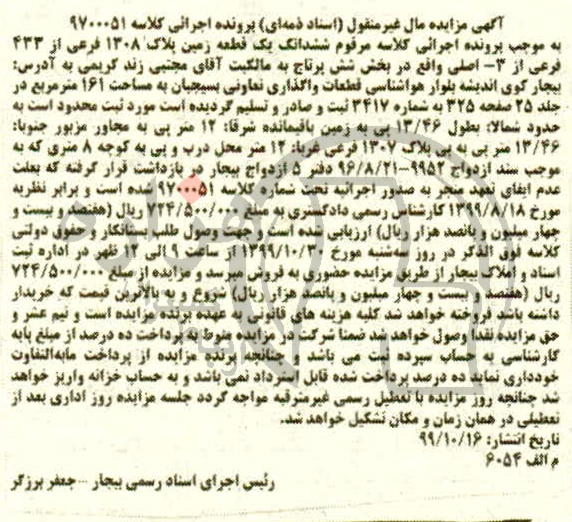 آگهی مزایده مال غیرمنقول (اسناد ذمه‌ای) پرونده اجرائی کلاسه ۹۷۰۰۰۵۱
به موجب پرونده اجرائی کلاسه مرقوم ششدانگ یک قطعه زمین پلاک ۱۳۰۸ فرعی از ۴۳۳
فرعی از ۳- اصلی واقع در بخش شش پرتاج به مالکیت آقای مجتبی زند کریمی به آدرس:
بیجار کوی اندیشه بلوار هواشناسی قطعات واگذاری تعاونی بسیجیان به مساحت ۱۶۱ مترمربع در
جلد ۲۵ صفحه ۳۲۵ به شماره ۳۴۱۷ ثبت و صادر و تسلیم گردیده است مورد ثبت محدود است به
حدود شمالا: بطول ۱۳/۴۶ پی به زمین باقیمانده شرقا: ۱۲ متر پی به مجاور مزبور جنوبا:
۱۳/۴۶ متر پی به پی پلاک ۱۳۰۷ فرعی غربا: ۱۲ متر محل درب و پی به کوچه ۸ متری که به
موجب سند ازدواج ۹۹۵۲-۹۶/۸/۲۱ دفتر ۵ ازدواج بیجار در بازداشت قرار گرفته که بعلت
عدم ایفای تعهد منجر به صدور اجرائیه تحت شماره کلاسه ۹۷۰۰۰۵۱ شده است و برابر نظریه
مورخ ۱۳۹۹/۸/۱۸ کارشناس رسمی دادگستری به مبلغ ۷۲۴/۵۰۰/۰۰۰ ریال (هفتصد و بیست و
چهار میلیون و پانصد هزار ریال) ارزیابی شده است و جهت وصول طلب بستانکار و حقوق دولتی
کلاسه فوق الذکر در روز سه‌شنبه مورخ ۱۳۹۹/۱۰/۳۰ از ساعت ۹ الی ۱۲ ظهر در اداره ثبت
اسناد و املاک بیجار از طریق مزایده حضوری به فروش میرسد و مزایده از مبلغ ۷۲۴/۵۰۰/۰۰۰
ریال (هفتصد و بیست و چهار میلیون و پانصد هزار ریال) شروع و به بالاترین قیمت که خریدار
داشته باشد فروخته خواهد شد کلیه هزینه های قانونی به عهده برنده مزایده است و نیم عشر و
حق مزایده نقدا وصول خواهد شد ضمنا شرکت در مزایده منوط به پرداخت ده درصد از مبلغ پایه
کارشناسی به حساب سپرده ثبت می باشد و چنانچه برنده مزایده از پرداخت مابه‌التفاوت
خودداری نماید ده درصد پرداخت شده قابل استرداد نمی باشد و به حساب خزانه واریز خواهد
شد چنانچه روز مزایده با تعطیل رسمی غیرمترقبه مواجه گردد جلسه مزایده روز اداری بعد از
تعطیلی در همان زمان و مکان تشکیل خواهد شد.
تاریخ انتشار: ۹۹/۱۰/۱۶
م الف ۶۰۵۴
رئیس اجرای اسناد رسمی بیجار - جعفر برزگر